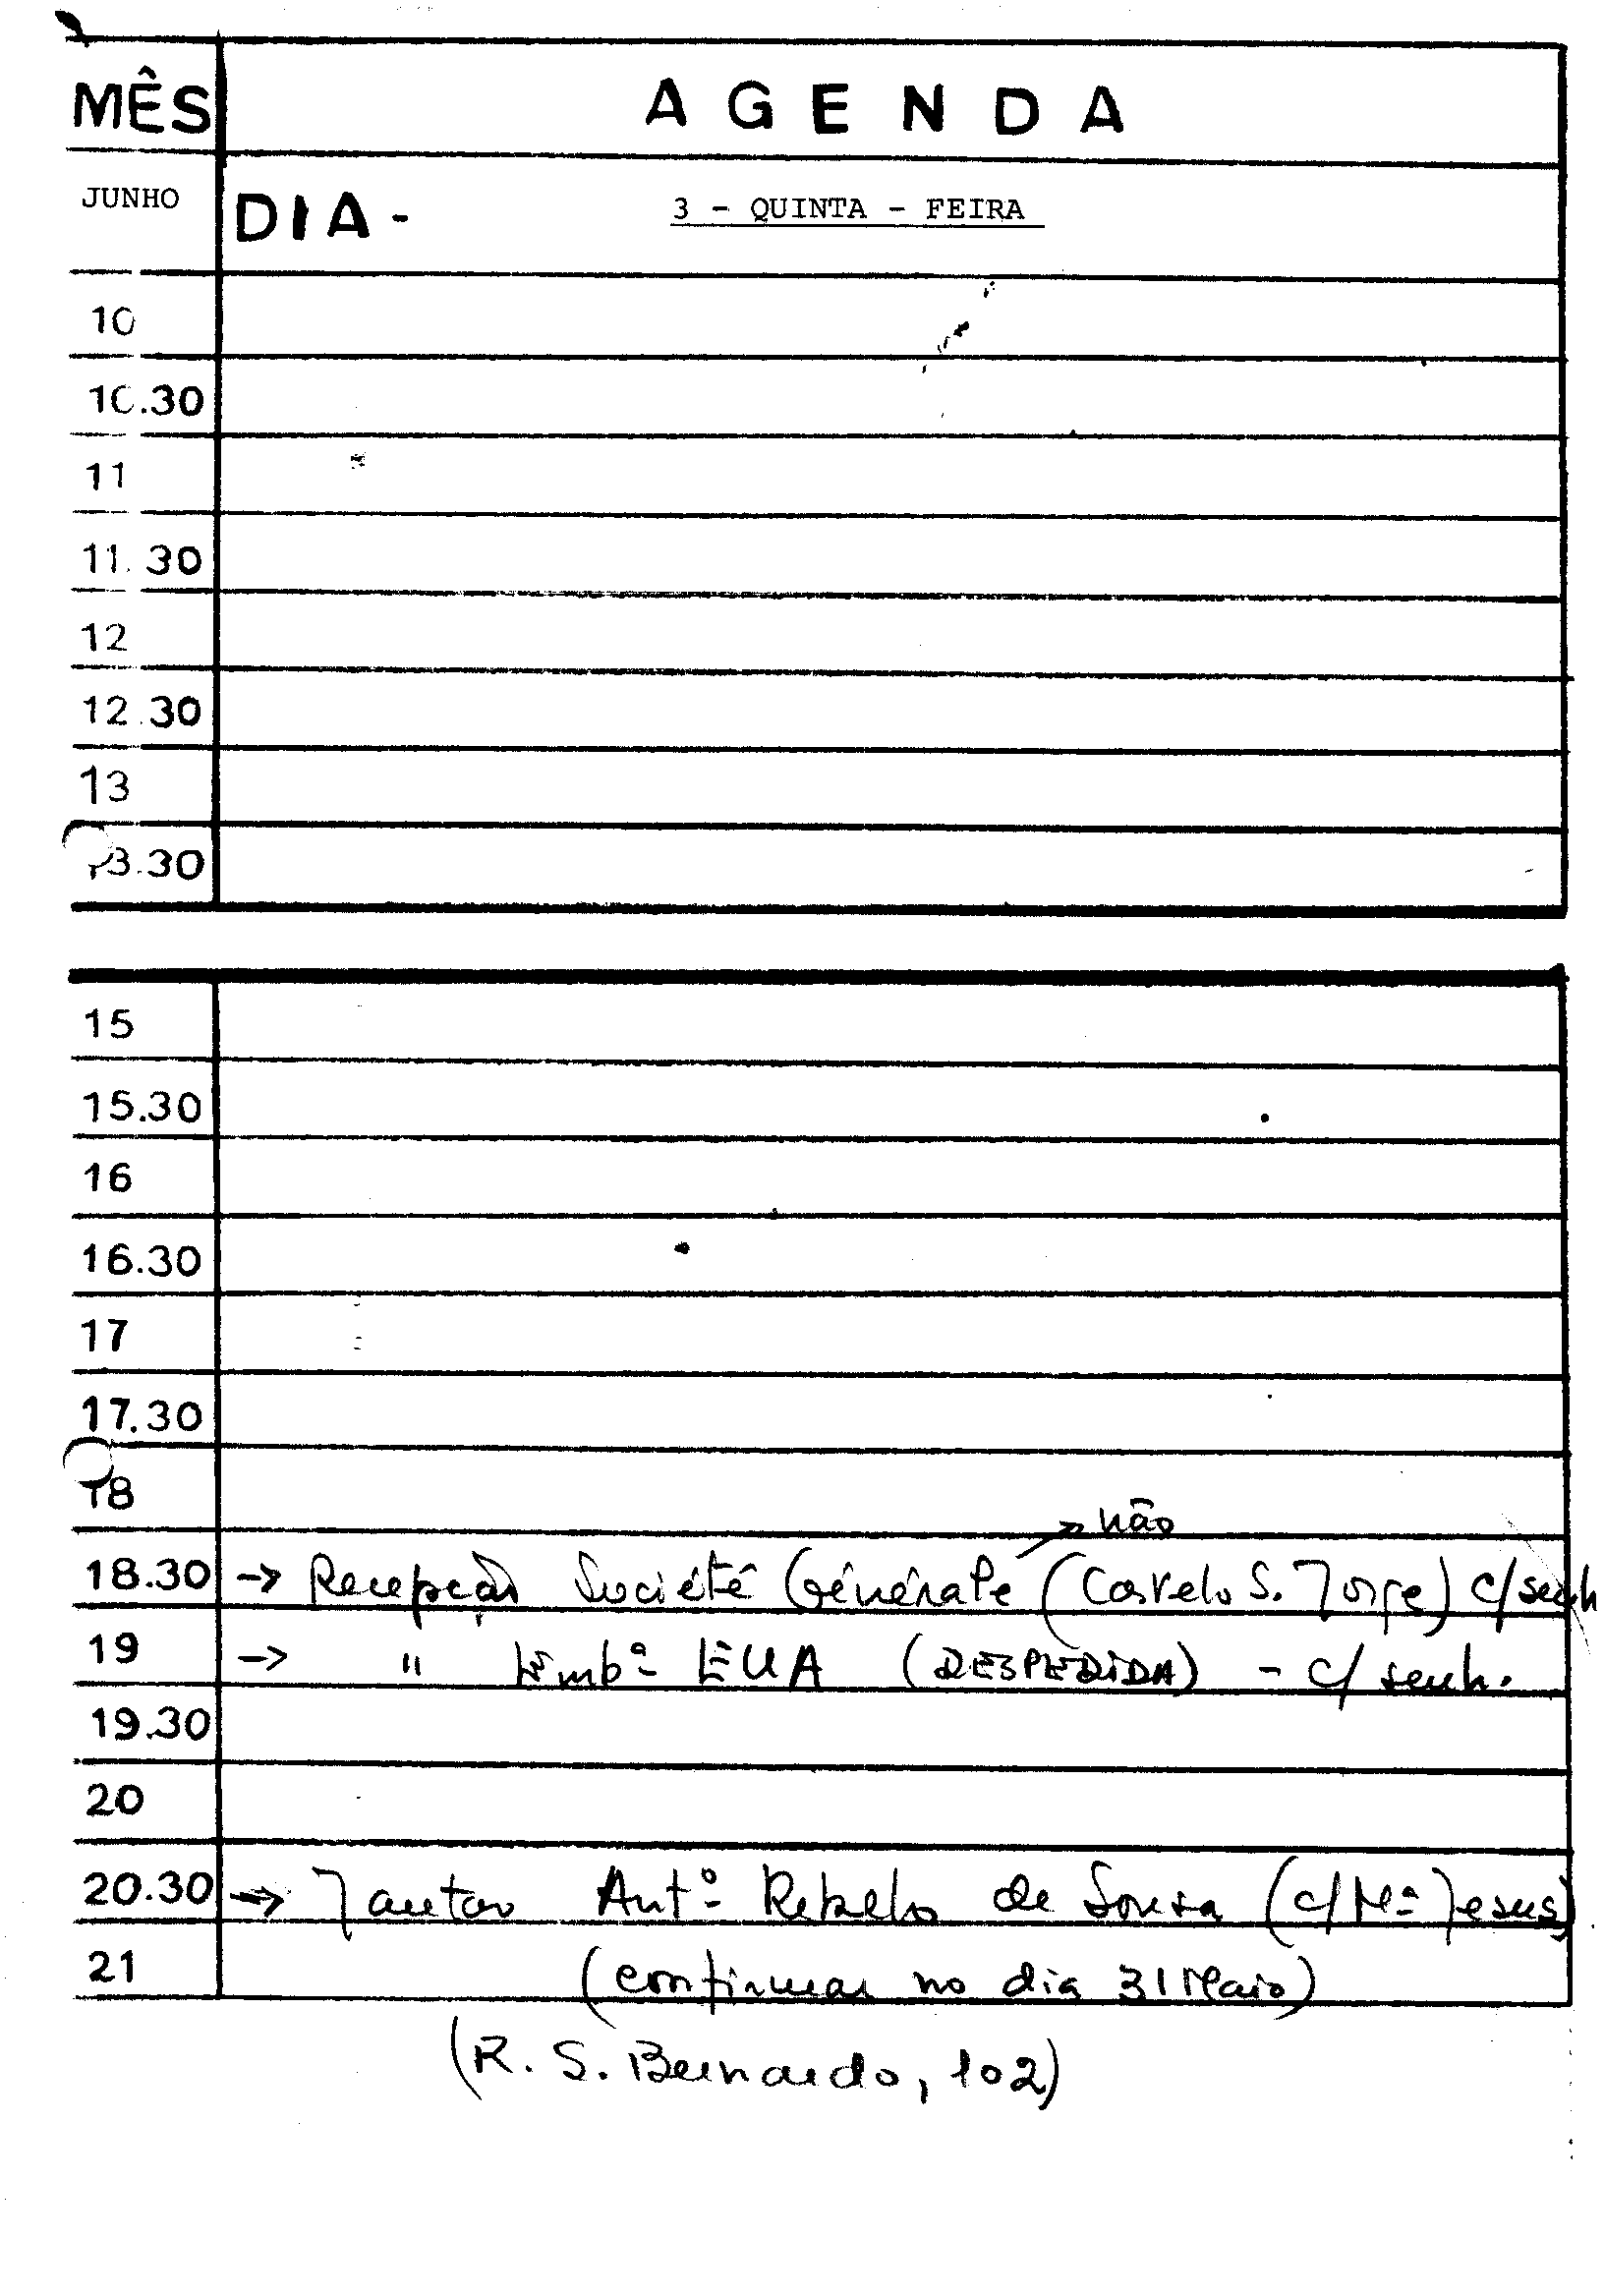 MÊS AGENDA
JUNHO DIA - 3 - QUINTA - FEIRA
10
10.30
11
11.30
12
12.30
13
13.30
15
15.30
16
16.30
17
17.30
18
não
18.30 → Recepção Société Générale (Castelo S. Jorge) c/senh
19 → " Embª EUA (DESPEDIDA) - c/ senh.
19.30
20
20.30 → Jantar Antº Rebelo de Sousa (c/ Mª Jesus)
21 (confirmar no dia 31 Maio)
(R. S. Bernardo, 102)